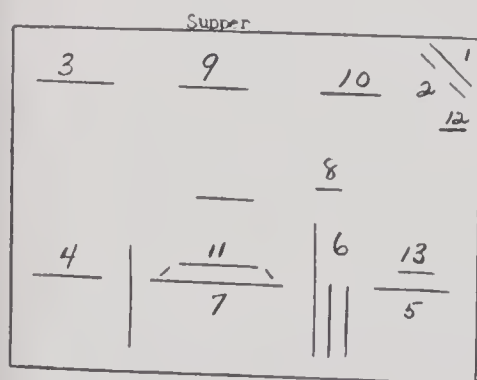 Supper
3 9 10 2 1
12
8
4 11 6 13
7 5